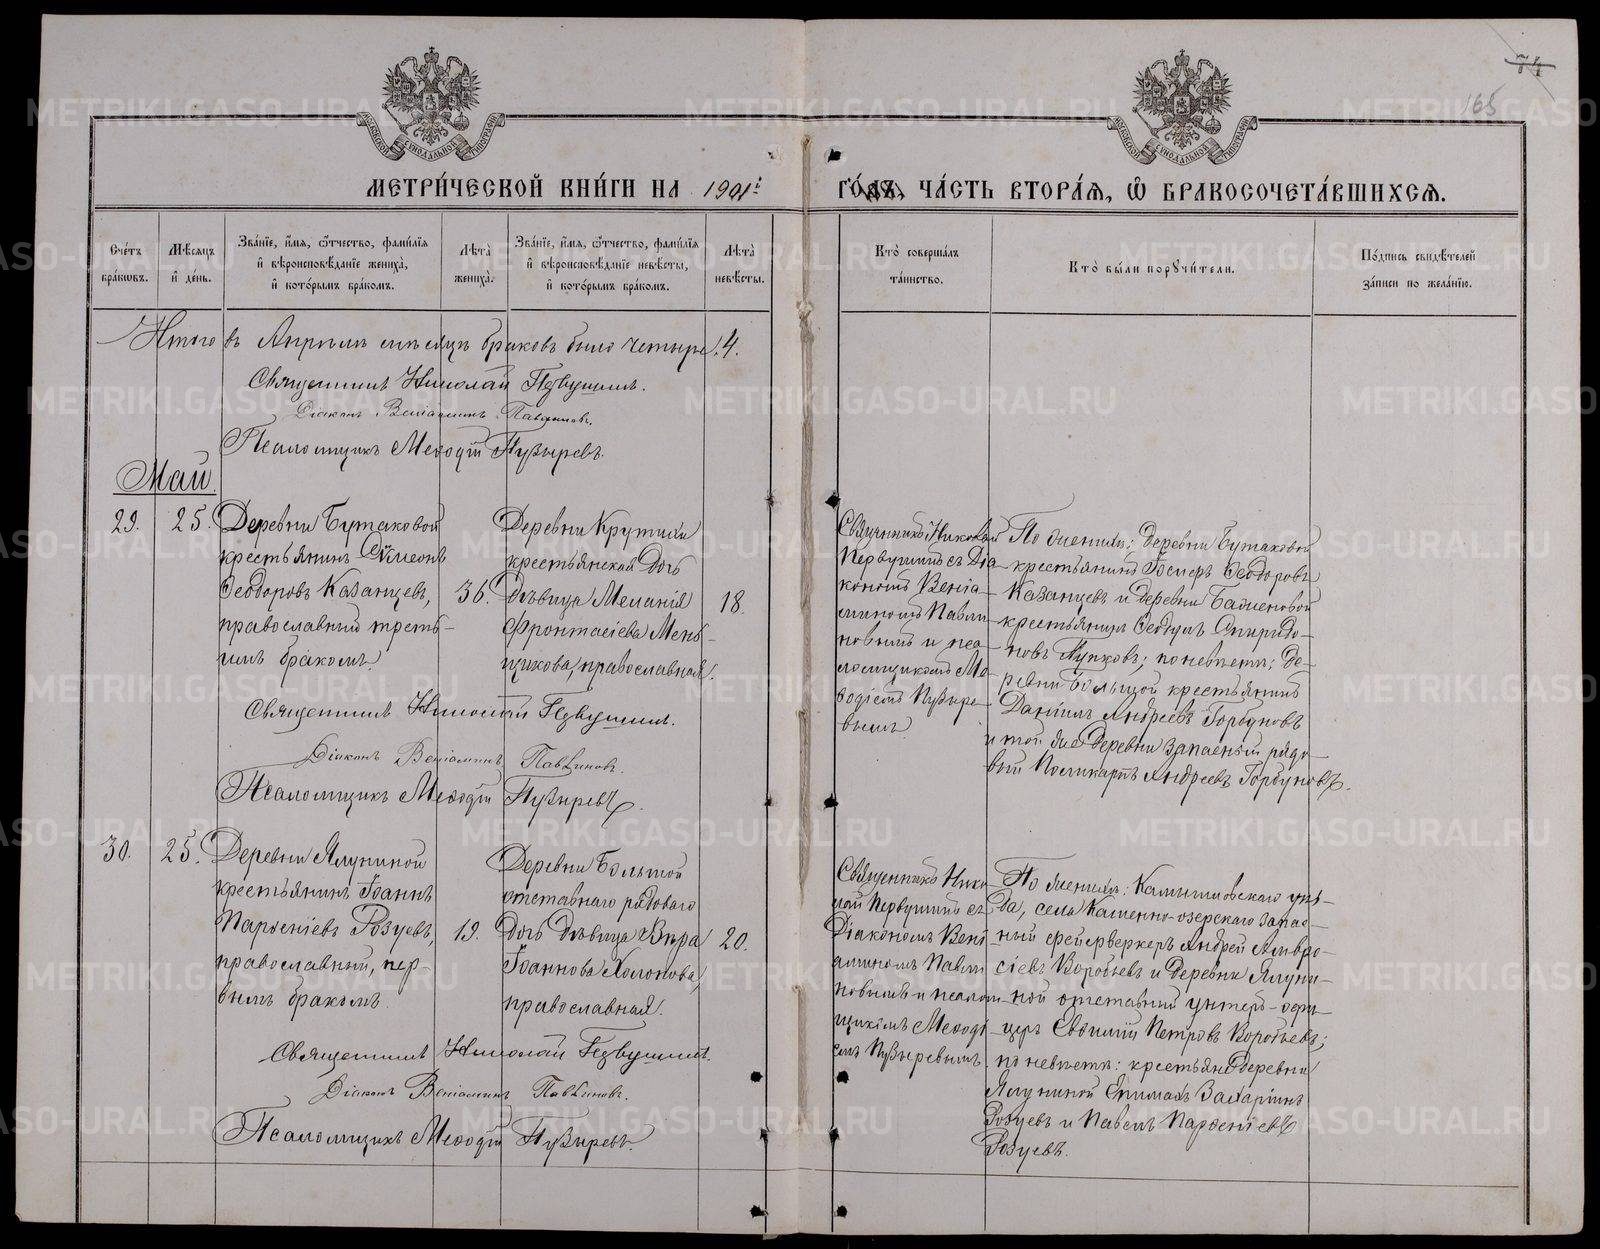 74
165
МЕТРИ́ЧЕСКОЙ КНИ́ГИ НА 1901й ГО́ДЪ, ЧА́СТЬ ВТОРА́Я, Ѿ БРАКОСОЧЕТА́ВШИХСЯ.
Сче́тъ бра́ковъ.
Мѣ́сяцъ и де́нь.
Зва́нїе, и́мя, ѻ҆́тчество, фами́лїя и҆ вѣроисповѣ́данїе жениха̀, и҆ кото́рымъ бра́комъ.
Лѣ́та жениха̀.
Зва́нїе, и́мя, ѻ҆́тчество, фами́лїя и҆ вѣроисповѣ́данїе невѣ́сты, и҆ кото́рымъ бра́комъ.
Лѣ́та невѣ́сты.
Кто̀ соверша́лъ та́инство.
Кто̀ бы́ли порꙋчи́тели.
По́дпись свидѣ́телей за́писи по жела́нїю.
Итого въ Апрѣлѣ мѣсяцѣ браковъ было четыре. 4.
Священникъ Николай Первушинъ.
Діаконъ Веніаминъ Павлиновъ.
Псаломщикъ Меѳодій Пузыревъ.
Май.
29.
25.
Деревни Бутаковой
крестьянинъ Сѵмеонъ
Ѳеодоровъ Казанцевъ,
православный, треть-
имъ бракомъ.
36.
Деревни Крутихи
крестьянская дочь
дѣвица Меланія
Фронтасіева Мень-
щикова, православная.
18.
Священникъ Николай
Первушинъ съ Діа-
кономъ Веніа-
миномъ Павли-
новымъ и пса-
ломщикомъ Ме-
ѳодіемъ Пузыре-
вымъ.
По женихѣ: деревни Бутаковой
крестьянинъ Іосифъ Ѳеодоровъ
Казанцевъ и деревни
крестьянинъ Ѳеодулъ Спиридо-
новъ; по невѣстѣ: де-
ревни Большой крестьянинъ
Даніилъ Андреевъ Горбуновъ
и той же деревни запасный рядо-
вый Поликарпъ Андреевъ Горбуновъ.
Священникъ Николай Первушинъ.
Діаконъ Веніаминъ Павлиновъ.
Псаломщикъ Меѳодій Пузыревъ.
30.
25.
Деревни Ялуниной
крестьянинъ Іоаннъ
Парѳеніевъ Розуевъ,
православный, пер-
вымъ бракомъ.
19.
Деревни Большой
отставнаго рядоваго
дочь дѣвица Вѣра
Іоаннова Холопова,
православная.
20.
Священникъ Нико-
лай Первушинъ съ
Діакономъ Вені-
аминомъ Павли-
новымъ и псалом-
щикомъ Меѳоді-
емъ Пузыревымъ.
По женихѣ: Камышловскаго уѣз-
да, села Каменно-озерскаго запас-
ный фейерверкеръ Андрей Амвро-
сіевъ Воробьевъ и деревни Ялуни-
ной отставный унтеръ-офи-
церъ Евѳимій Петровъ Воробьевъ;
по невѣстѣ: крестьяне деревни
Ялуниной Епимахъ Захаріинъ
Розуевъ и Павелъ Парѳеніевъ
Розуевъ.
Священникъ Николай Первушинъ.
Діаконъ Веніаминъ Павлиновъ.
Псаломщикъ Меѳодій Пузыревъ.
METRIKI.GASO-URAL.RU